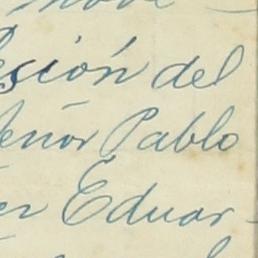 esión del
eñor Pablo
er Eduar-